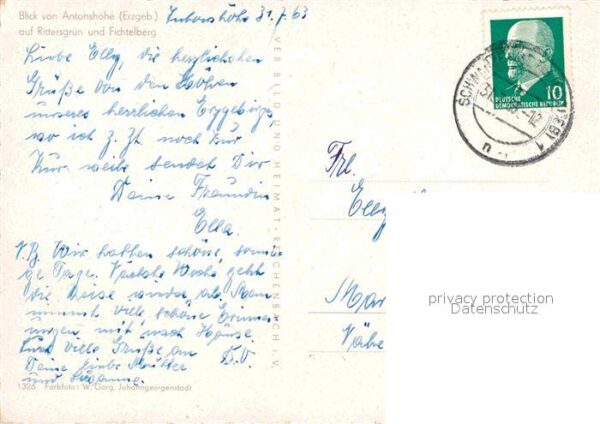 Blick von Antonshöhe (Erzgeb.)
auf Rittersgrün und Fichtelberg
Antonshöhe 31.7.63
Liebe Elly, die herzlichsten
Grüße von den Höhen
unseres herrlichen Erzgebirges
wo ich z. Zt. noch zur
Kur weile sendet Dir
Deine Freundin
Ella.
N.B. Wir hatten schöne, sonni-
ge Tage. Nächste Woche geht
die Reise wieder ab. Man
nimmt viele schöne Erinne-
rungen mit nach Hause.
Und viele Grüße an
D.O.
Deine liebe Mutter
und Susanne.
1326 Farbfoto: W. Görg, Johanngeorgenstadt
VEB BILD UND HEIMAT REICHENBACH i. V.
10
DEUTSCHE
DEMOKRATISCHE REPUBLIK
Frl.
Elly
Mar
privacy protection
Datenschutz